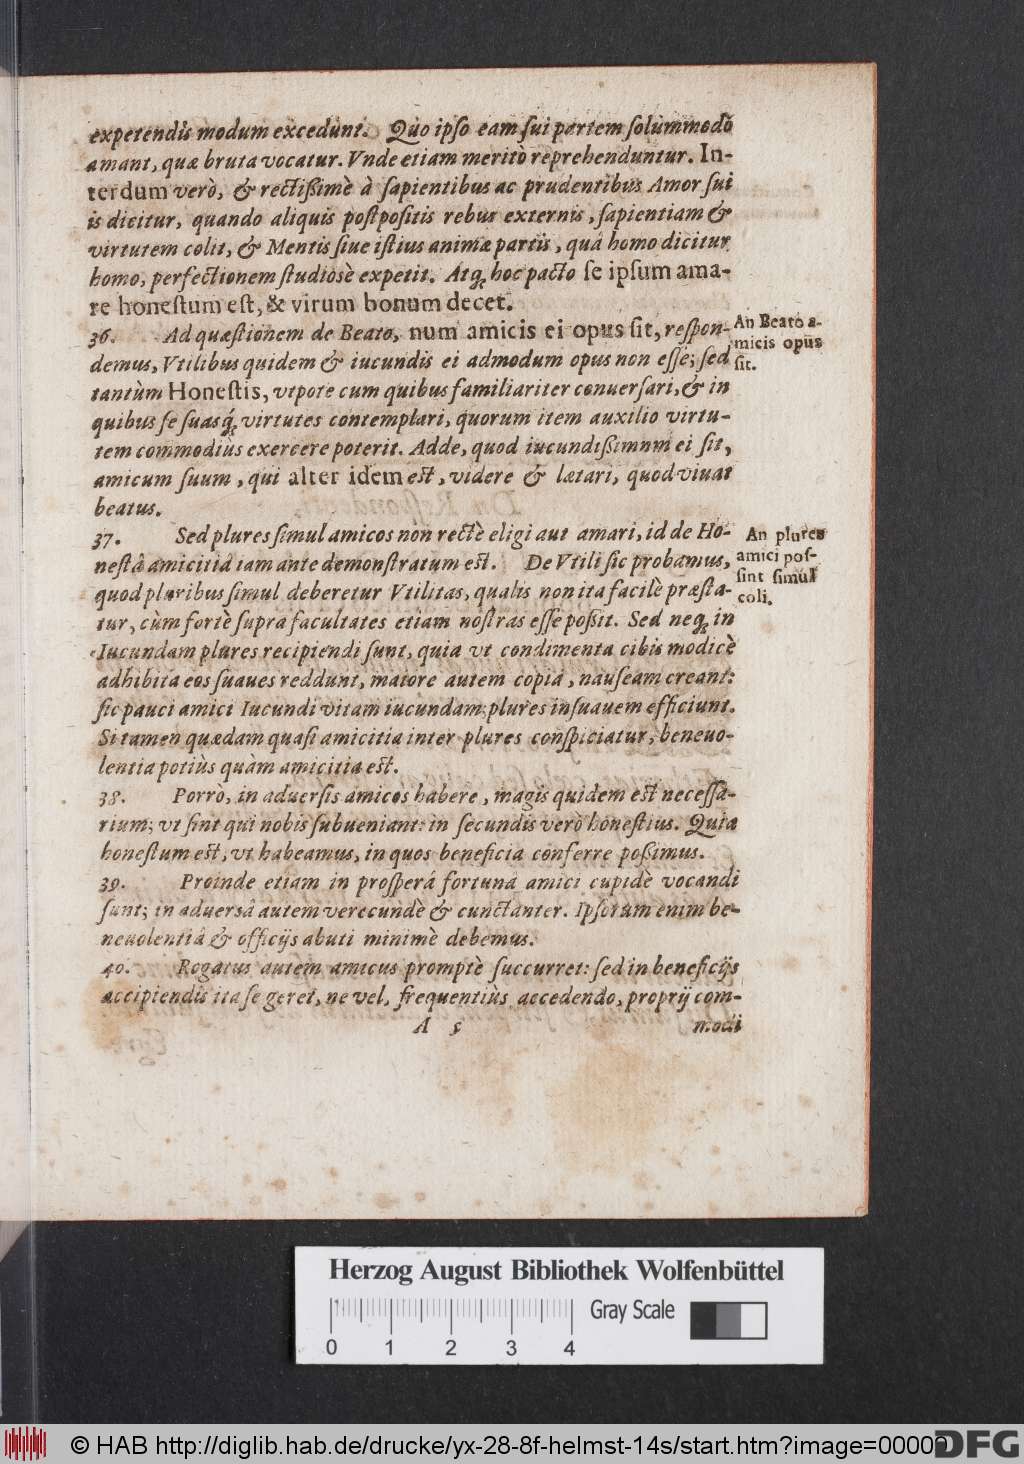 expetendis modum excedunt. Quo ipso eam sui partem solummodò
amant, quæ bruta vocatur. Vnde etiam meritò reprehenduntur. In-
terdum verò, & rectißimè à sapientibus ac prudentibus Amor sui
is dicitur, quando aliquis postpositis rebus externis, sapientiam &
virtutem colit, & Mentis siue istius animæ partis, quâ homo dicitur
homo, perfectionem studiosè expetit. Atq; hoc pacto se ipsum ama-
re honestum est, & virum bonum decet.
36. Ad quæstionem de Beato, num amicis ei opus sit, respon-
demus, Vtilibus quidem & iucundis ei admodum opus non esse; sed
tantùm Honestis, vtpote cum quibus familiariter conuersari, & in
quibus se suasq́; virtutes contemplari, quorum item auxilio virtu-
tem commodius exercere poterit. Adde, quod iucundißimum ei sit,
amicum suum, qui alter idem est, videre & lætari, quod viuat
beatus.
An Beato a-
micis opus
sit.
37. Sed plures simul amicos non rectè eligi aut amari, id de Ho-
nestâ amicitiâ iam ante demonstratum est. De Vtili sic probamus,
quod pluribus simul deberetur Vtilitas, qualis non ita facilè præsta-
tur, cùm fortè supra facultates etiam nostras esse poßit. Sed neq; in
Iucundam plures recipiendi sunt, quia vt condimenta cibis modicè
adhibita eos suaues reddunt, maiore autem copiâ, nauseam creant:
sic pauci amici Iucundi vitam iucundam; plures insuauem efficiunt.
Si tamen quædam quasi amicitia inter plures conspiciatur, beneuo-
lentia potiùs quàm amicitia est.
An plures
amici pos-
sint simul
coli.
38. Porrò, in aduersis amicos habere, magis quidem est necessa-
rium; vt sint qui nobis subueniant: in secundis verò honestius. Quia
honestum est, vt habeamus, in quos beneficia conferre poßimus.
39. Proinde etiam in prosperâ fortunâ amici cupidè vocandi
sunt; in aduersâ autem verecundè & cunctanter. Ipsorum enim be-
neuolentiâ & officijs abuti minimè debemus.
40. Rogatus autem amicus promptè succurret: sed in beneficijs
accipiendis ita se geret, ne vel, frequentiùs accedendo, proprij com-
A 5 modi
Herzog August Bibliothek Wolfenbüttel
Gray Scale
0 1 2 3 4
© HAB http://diglib.hab.de/drucke/yx-28-8f-helmst-14s/start.htm?image=00009
DFG